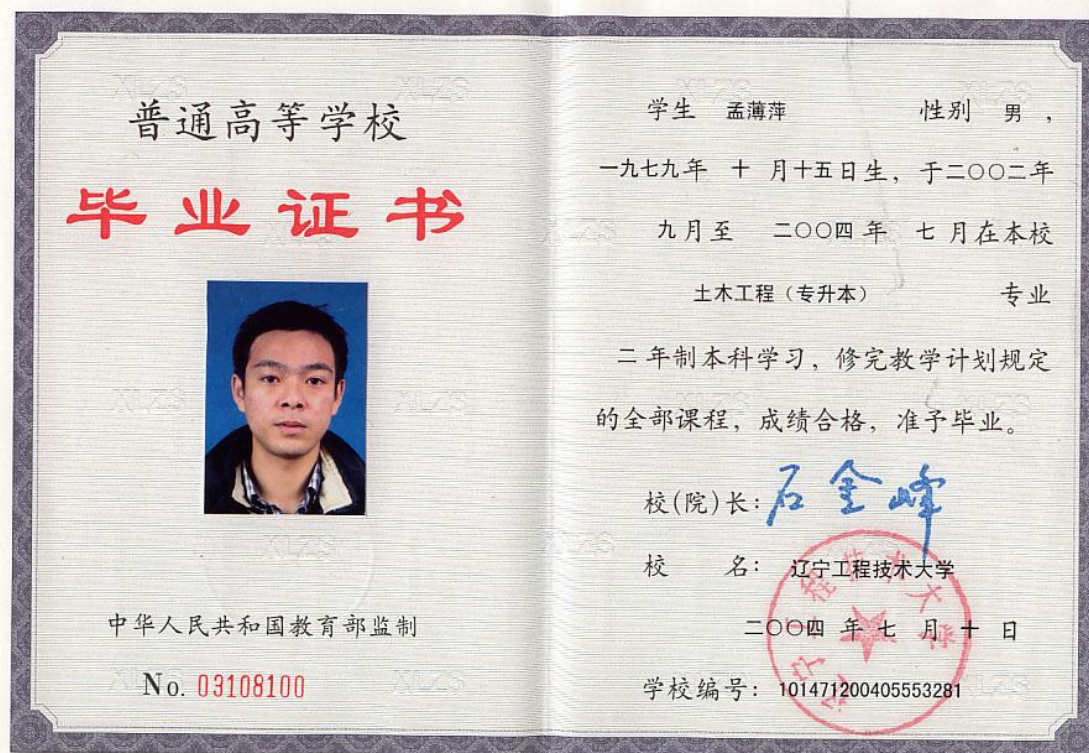 普通高等学校
毕业证书
中华人民共和国教育部监制
No. 03108100
学生 孟薄萍 性别 男 ，
一九七九年 十 月十五日生，于二〇〇二年
九月至 二〇〇四 年 七 月在本校
土木工程（专升本） 专业
二 年制本科学习，修完教学计划规定
的全部课程，成绩合格，准予毕业。
校(院)长：石金峰
校 名： 辽宁工程技术大学
二〇〇四 年 七 月 十 日
学校编号： 101471200405553281
辽宁工程技术大学
XLZS